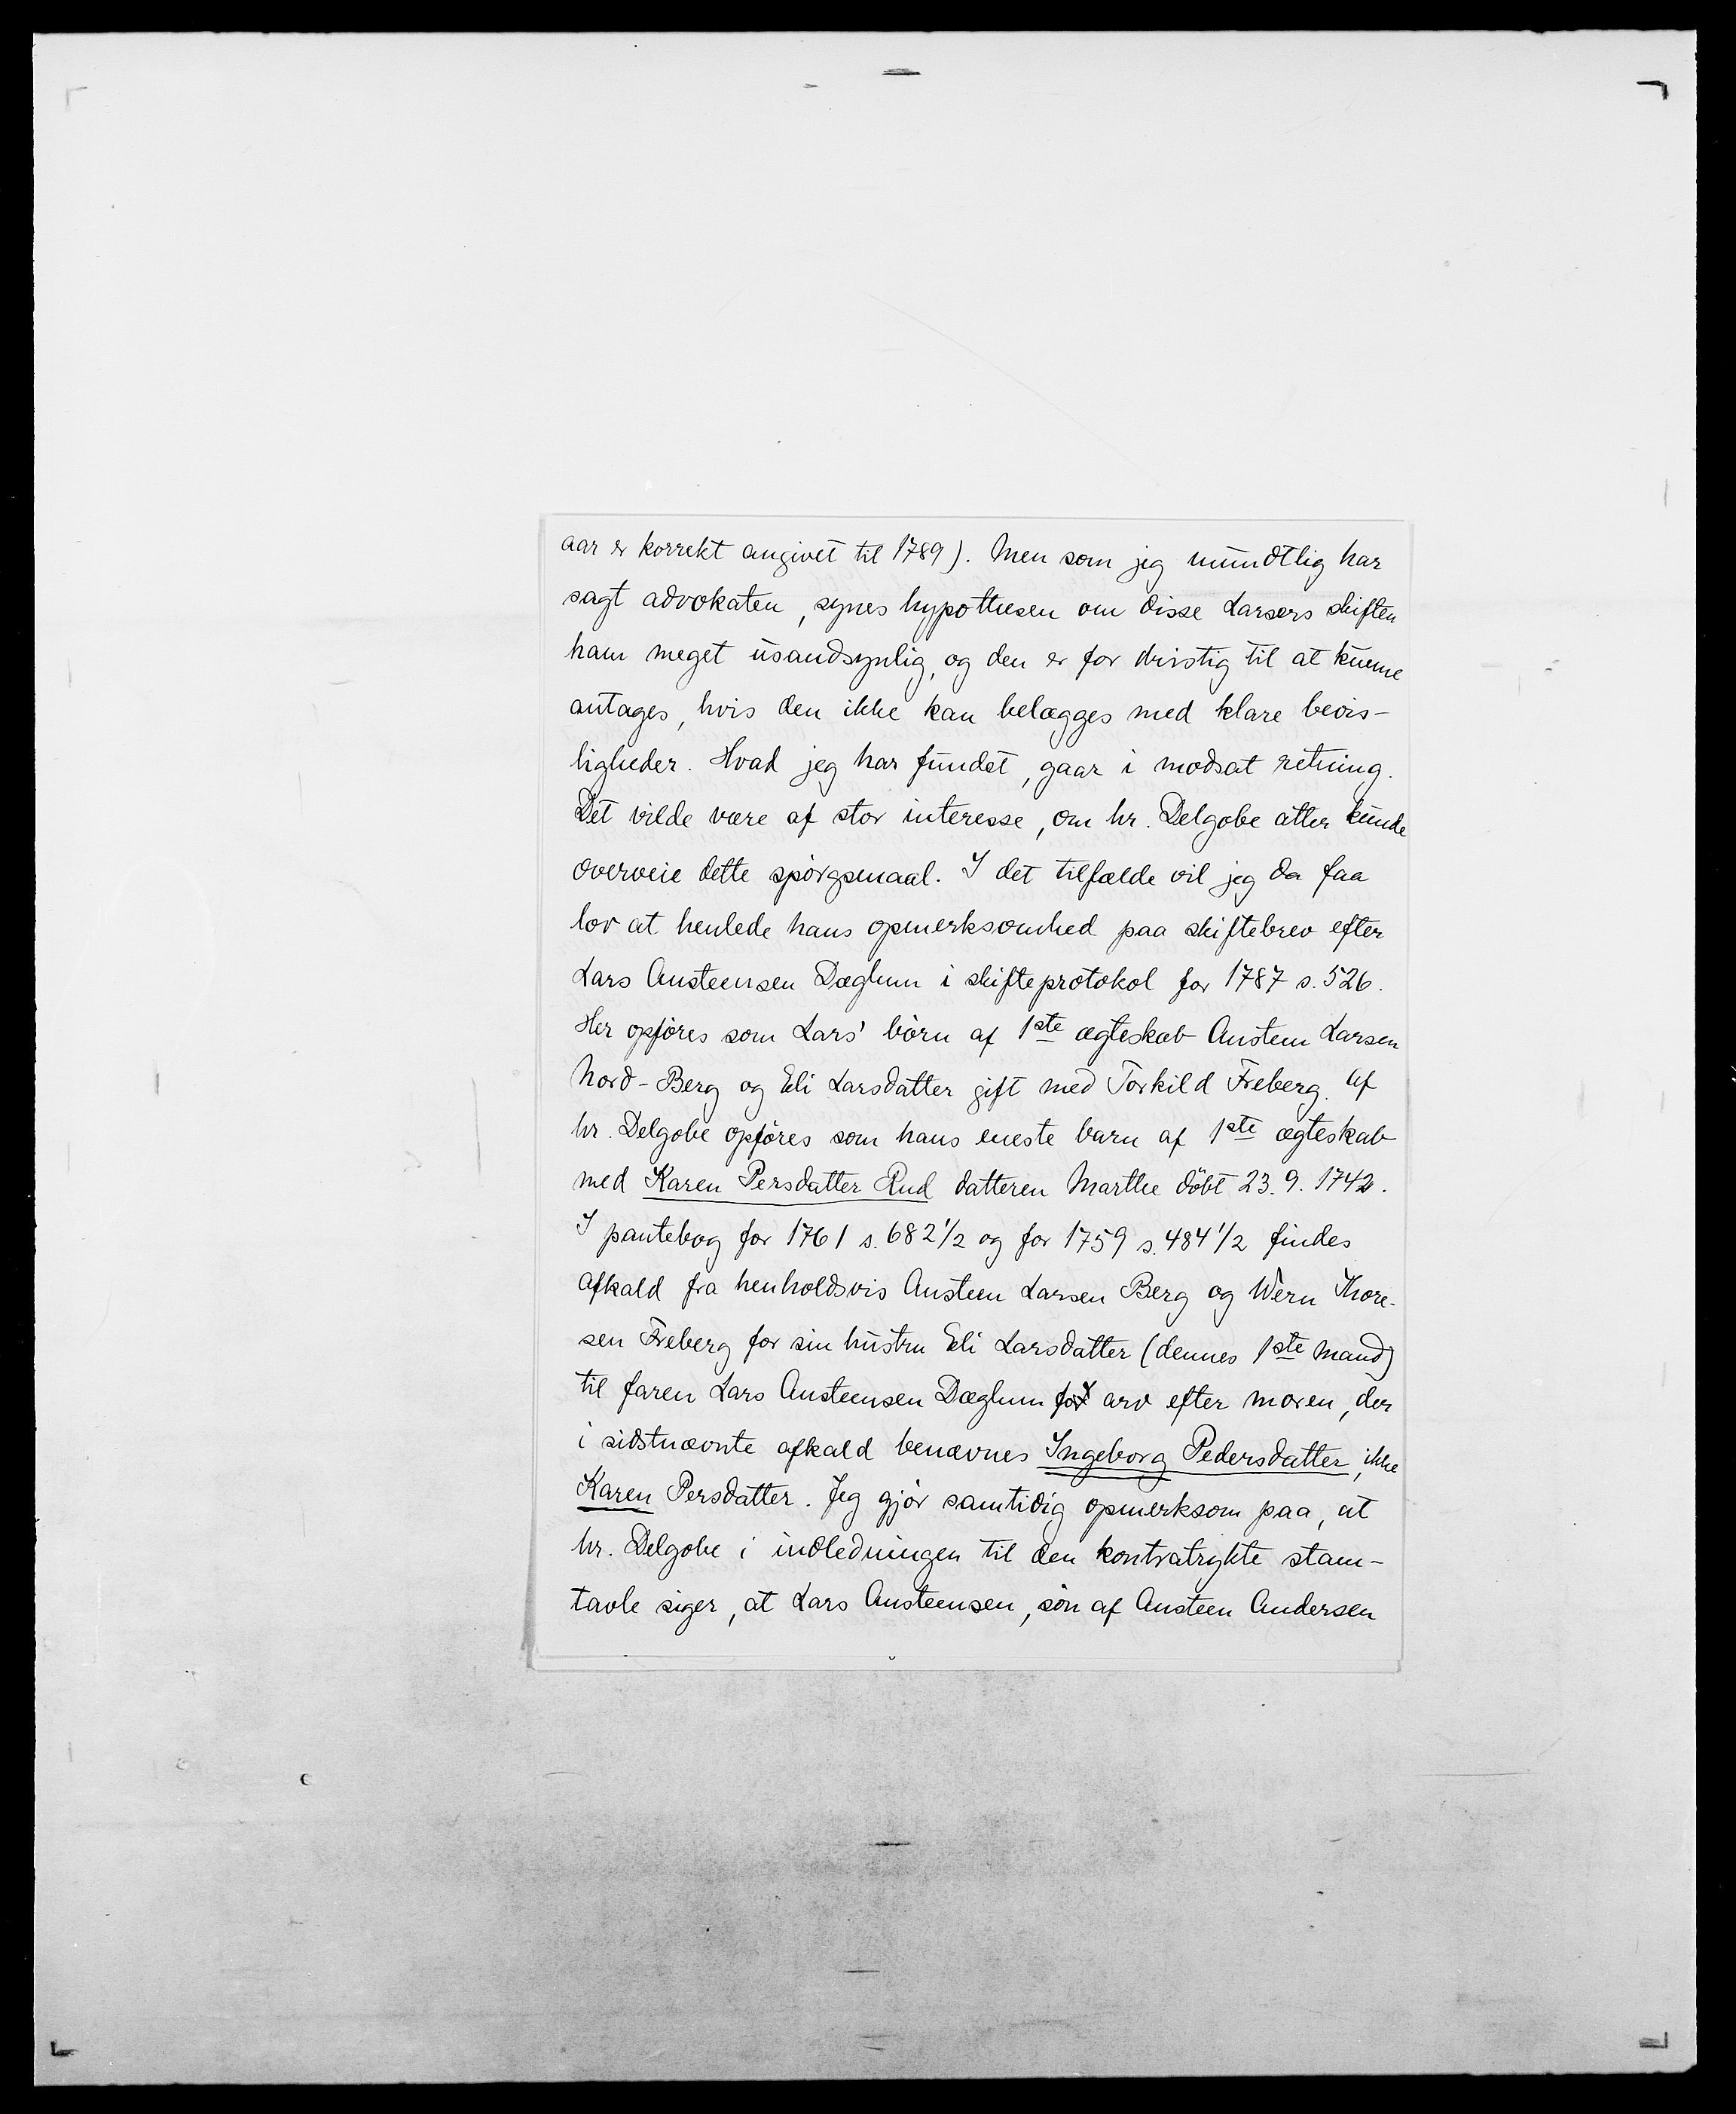 aar er korrekt angivet til 1789). Men som jeg mundtlig har
sagt advokaten, synes hypothesen om disse Larsers skiften
ham meget usandsynlig, og den er for dristig til at kunne
antages, hvis den ikke kan belægges med klare bevis-
ligheder. Hvad jeg har fundet, gaar i modsat retning.
Det vilde være af stor interesse, om hr. Delgobe atter kunde
overveie dette spörgsmaal. I det tilfælde vil jeg da faa
lov at henlede hans opmerksomhed paa skiftebrev efter
Lars Austeensen Dæglum i skifteprotokol for 1787 s. 526.
Her opföres som Lars' börn af 1ste ægteskab Austeen Larsen
Nord-Berg og Eli Larsdatter gift med Torkild Freberg. Af
hr. Delgobe opföres som hans eneste barn af 1ste ægteskab
med Karen Persdatter Rud datteren Marthe döbt 23.9. 1742.
I pantebog for 1761 s. 682 1/2 og for 1759 s. 484 1/2 findes
afkald fra henholdsvis Austeen Larsen Berg og Wern Thore-
sen Freberg for sin hustru Eli Larsdatter (dennes 1ste mand)
til faren Lars Austeensen Dæglum for arv efter moren, der
i sidstnævnte afkald benævnes Ingeborg Pedersdatter, ikke
Karen Persdatter. Jeg gjör samtidig opmerksom paa, at
hr. Delgobe i indledningen til den kontratrykte stam-
tavle siger, at Lars Austeensen, sön af Austeen Andersen